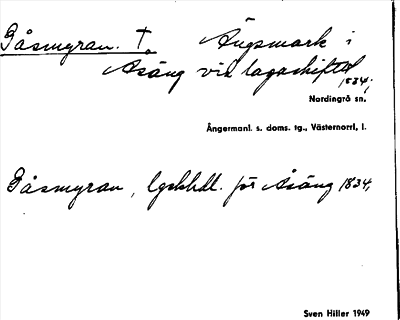 Gåsmyran. †. Ängsmark i
Åsäng vid lagaskiftet
1834;
Nordingrå sn,
Ångermanl. s. doms. tg., Västernorrl, l.
Gåsmyran, lgshhdl. för Åsäng 1834,
Sven Hiller 1949